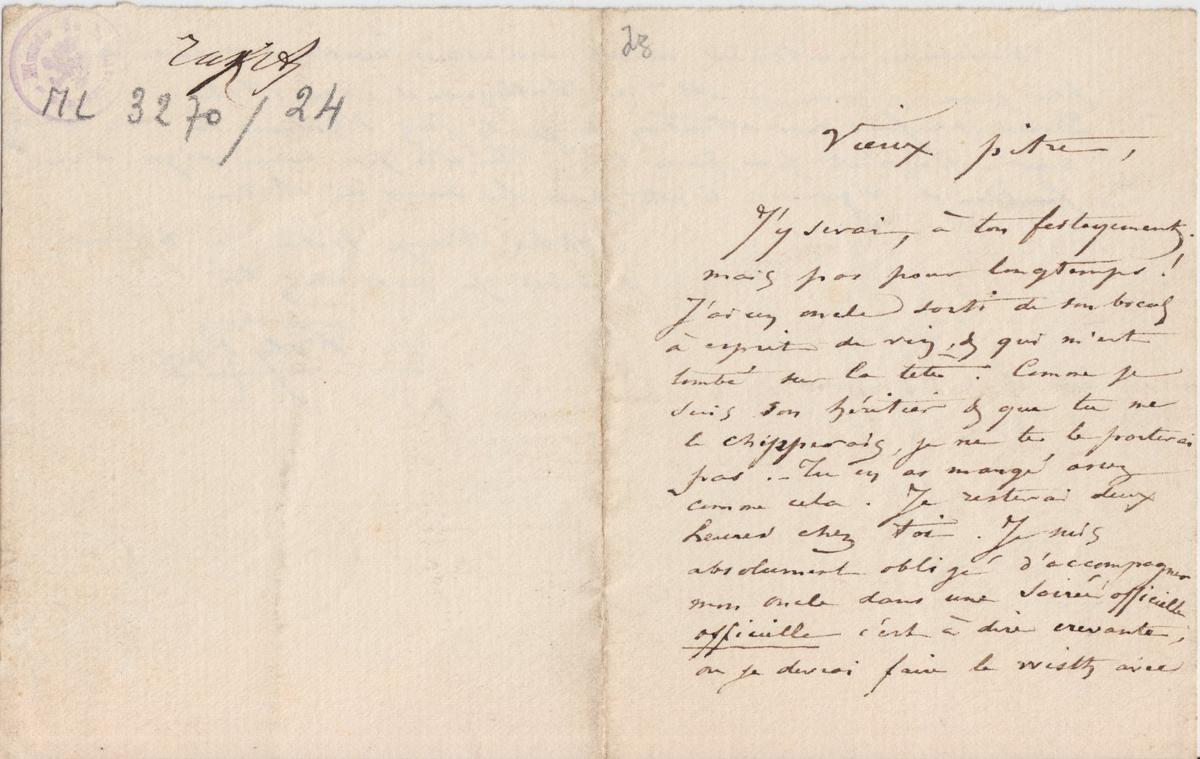 ML 3270/24
28
Vieux pitre,
J'y serai, à ton festoyement.
mais pas pour longtemps !
J'ai un oncle sorti de son bocal
à esprit de vin, & qui m'est
tombé sur la tête. Comme je
suis son héritier & que tu me
le chipperais, je ne te le porterai
pas. – Tu en as mangé assez
comme cela. Je resterai deux
heures chez toi. Je suis
absolument obligé d'accompagner
mon oncle dans une soirée officielle
officielle c'est à dire crevante,
ou je devrai faire le wisth avec